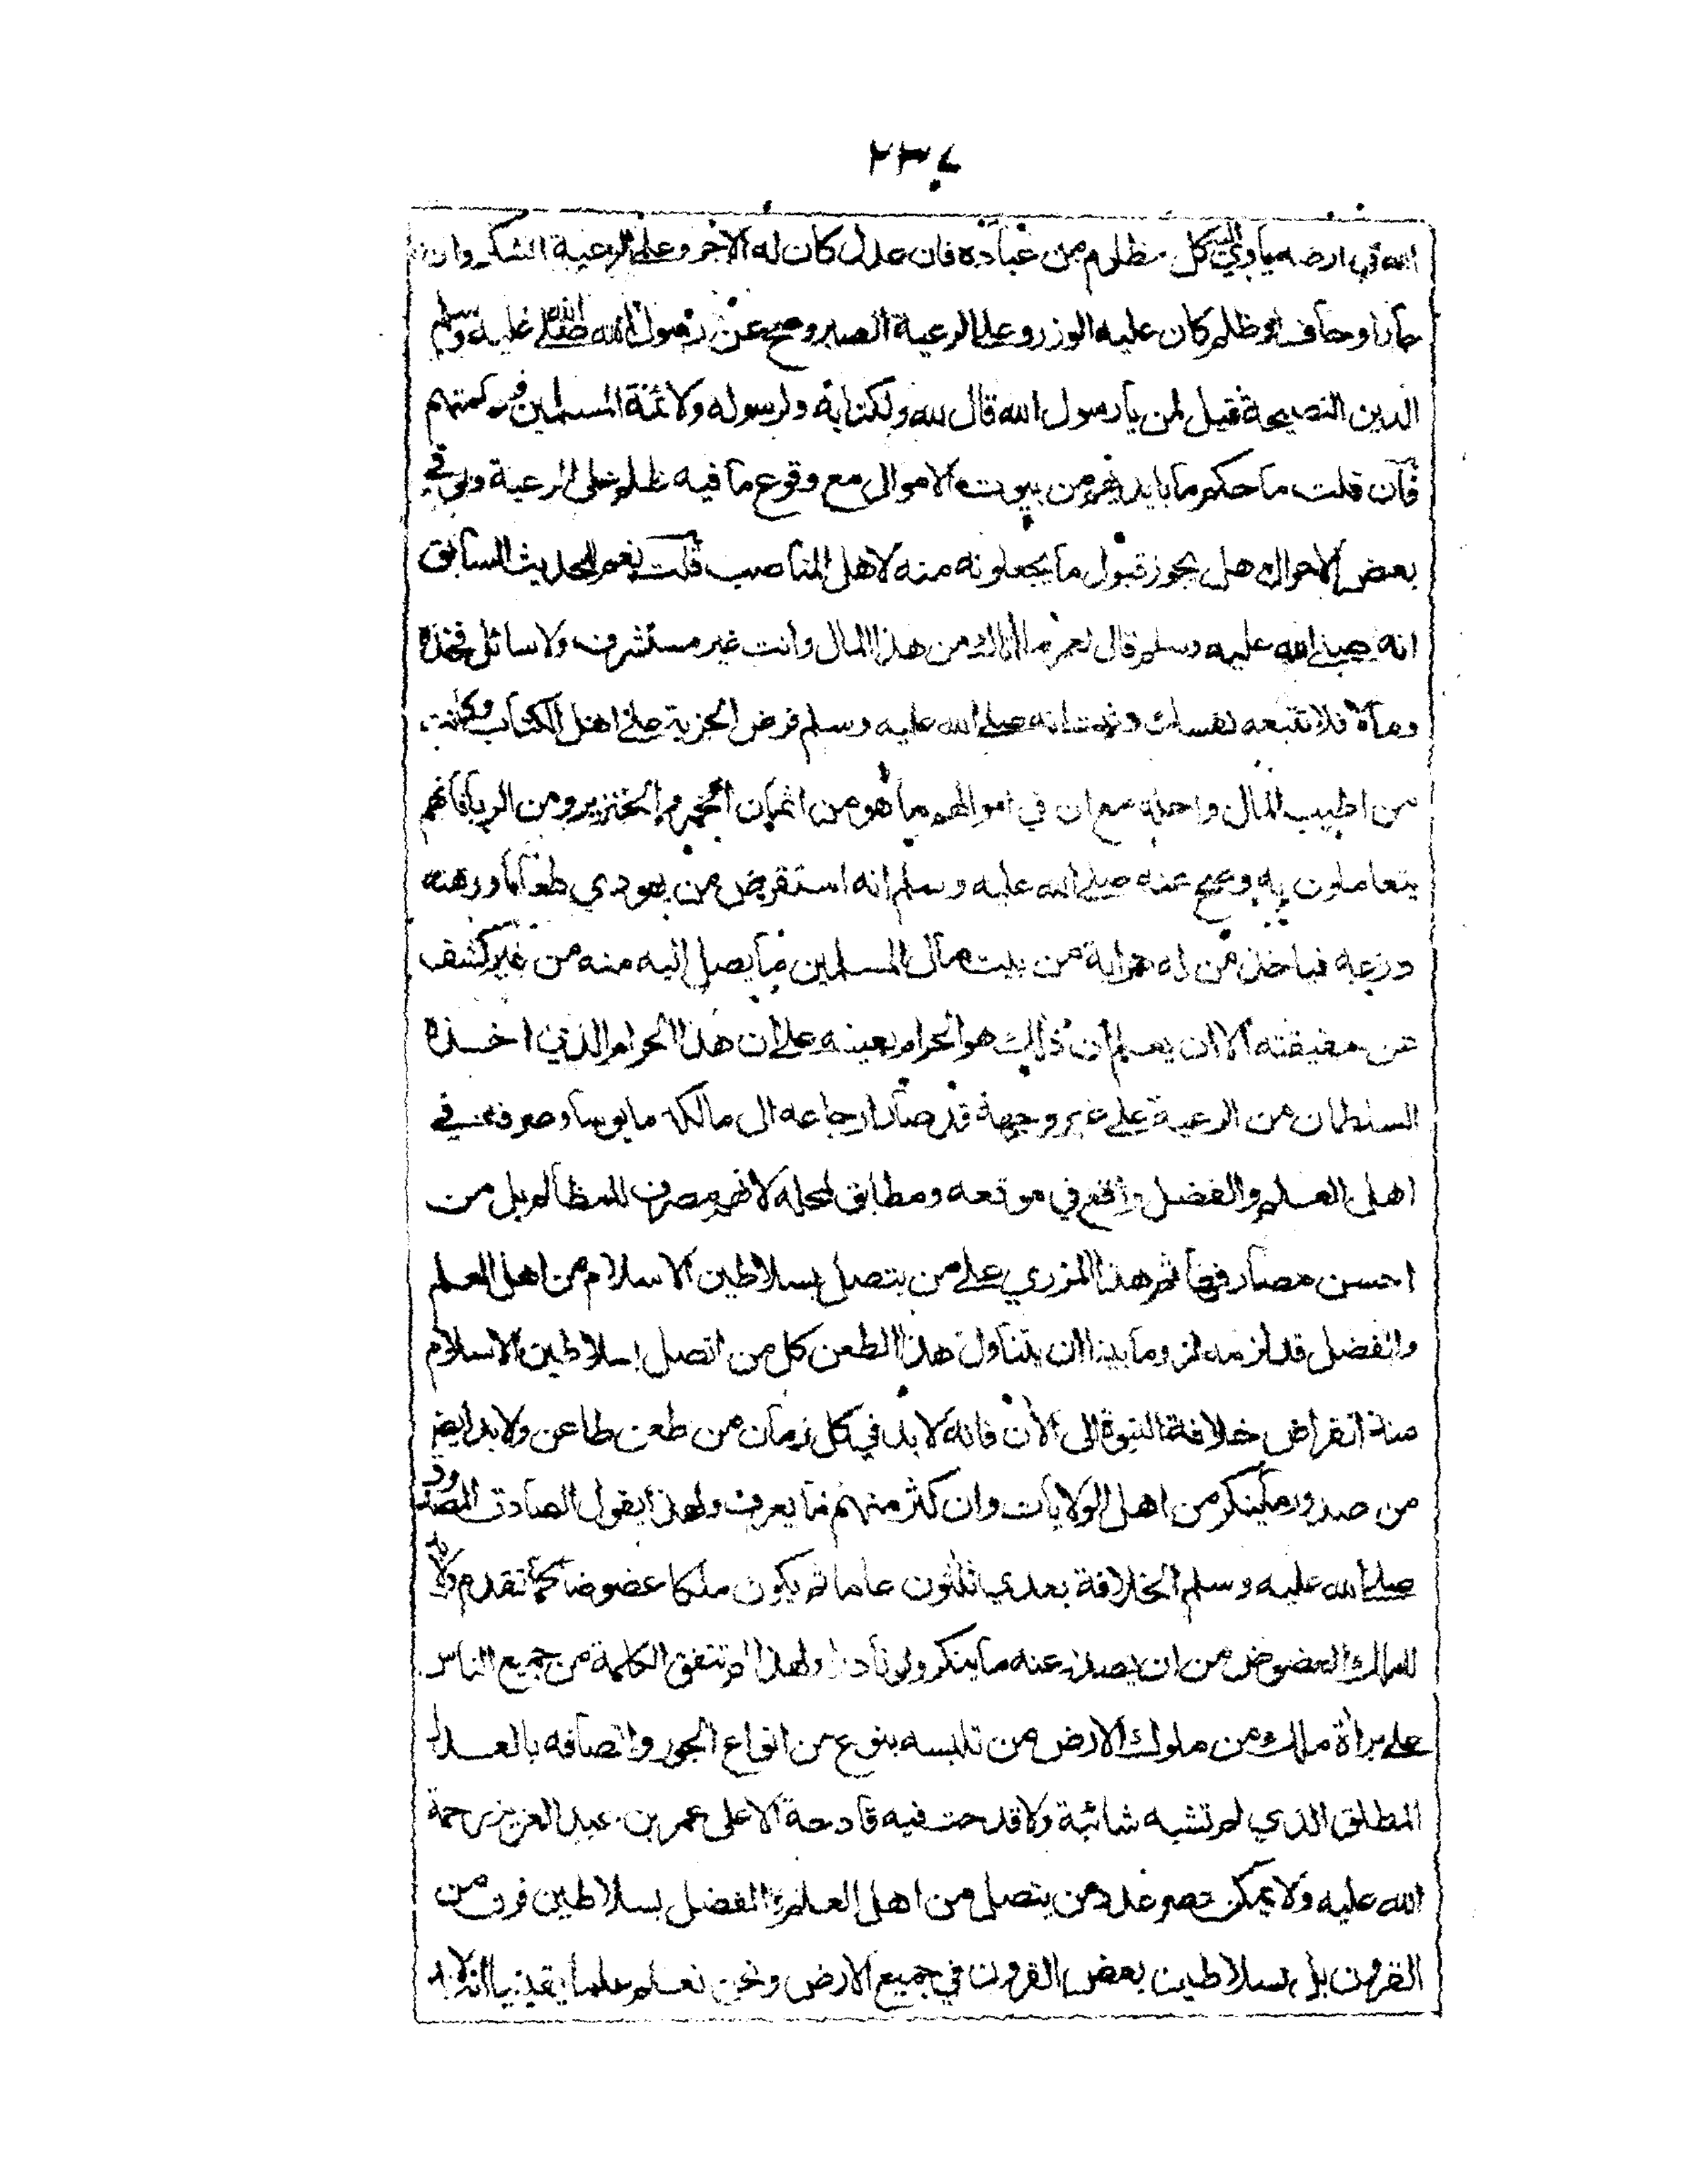 ٢٣٤
الله في ارضه يأوي اليه كل مظلوم من عباده فان عدل كان له الاجر وعلى الرعية الشكر وان
جار او حاف او ظلم كان عليه الوزر وعلى الرعية الصبر وصح عن رسول الله صلى الله عليه وسلم
الدين النصيحة قيل لمن يا رسول الله قال لله ولكتابه ولرسوله ولائمة المسلمين وعامتهم
فان قلت ما حكم ما بايديهم من بيوت الاموال مع وقوع ما فيه ظلم على الرعية ولو في
بعض الاحوال هل يجوز قبول ما يجعلونه منه لاهل المناصب قلت نعم للحديث السابق
انه صلى الله عليه وسلم قال لعمر ما اتاك من هذا المال وانت غير مستشرف ولا سائل فخذه
وما لا فلا تتبعه نفسك وثبت انه صلى الله عليه وسلم فرض الجزية على اهل الكتاب وكانت
من اطيب المال واحله مع ان في اموالهم ما هو من اثمان الخمر والخنزير ومن الربا فانهم
يتعاملون به وصح عنه صلى الله عليه وسلم انه استقرض من يهودي طعاما ورهنه
درعه فياخذ من له جراية من بيت مال المسلمين ما يصل اليه منه من غير كشف
عن حقيقته الا ان يعلم ان ذلك هو الحرام بعينه على ان هذا الحرام الذي اخذه
السلطان من الرعية على غير وجهه قد صار ارجاعه الى مالكه مايوسا وصرفه في
اهل العلم والفضل واقع في موقعه ومطابق لمحله لانهم مصرف للمظالم بل من
احسن مصارفها ثم هذا المزري على من يتصل بسلاطين الاسلام من اهل العلم
والفضل قد لزمه لزوما بينا ان يتناول هذا الطعن كل من اتصل بسلاطين الاسلام
منذ انقراض خلافة النبوة الى الآن فانه لا بد في كل زمان من طعن طاعن ولا بد ايضا
من صدور ما ينكر من اهل الولايات وان كثر منهم ما يعرف ولهذا يقول الصادق المصدوق
صلى الله عليه وسلم الخلافة بعدي ثلثون عاما ثم يكون ملكا عضوضا كما تقدم ولا بد
للملك العضوض من ان يصدر عنه ما ينكر ولو نادرا ولهذا لم تتفق الكلمة من جميع الناس
على براءة ملك من ملوك الارض من تلبسه بنوع من انواع الجور واتصافه بالعدل
المطلق الذي لم تشبه شائبة ولا قدحت فيه قادحة الا على عمر بن عبد العزيز رحمة
الله عليه ولا يمكن حصر عدد من يتصل من اهل العلم والفضل بسلاطين قرن من
القرون بل بسلاطين بعض القرون في جميع الارض ونحن نعلم علما يقينيا انه لا بد